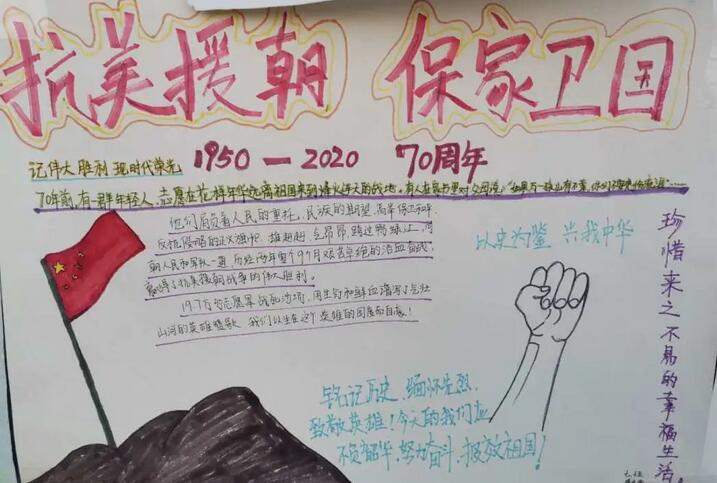 抗美援朝 保家卫国
记伟大胜利 现时代荣光
1950—2020 70周年
70年前,有一群年轻人,志愿在花样年华远离祖国来到
他们肩负着人民的重托,民族的期望,高举保卫和平、
反抗侵略的正义旗帜,雄赳赳,气昂昂,跨过鸭绿江,同
朝人民和军队一道,历经两年零9个月艰苦卓绝的浴血奋战,
赢得了抗美援朝战争的伟大胜利。
19.7万的志愿军战死沙场,用生命和鲜血谱写了气壮
山河的英雄赞歌,我们以生在这个英雄的国度而自豪!
以史为鉴 兴我中华
铭记历史,缅怀先烈,
致敬英雄!今天的我们应
不负韶华,努力奋斗,报效祖国!
珍惜来之不易的幸福生活。